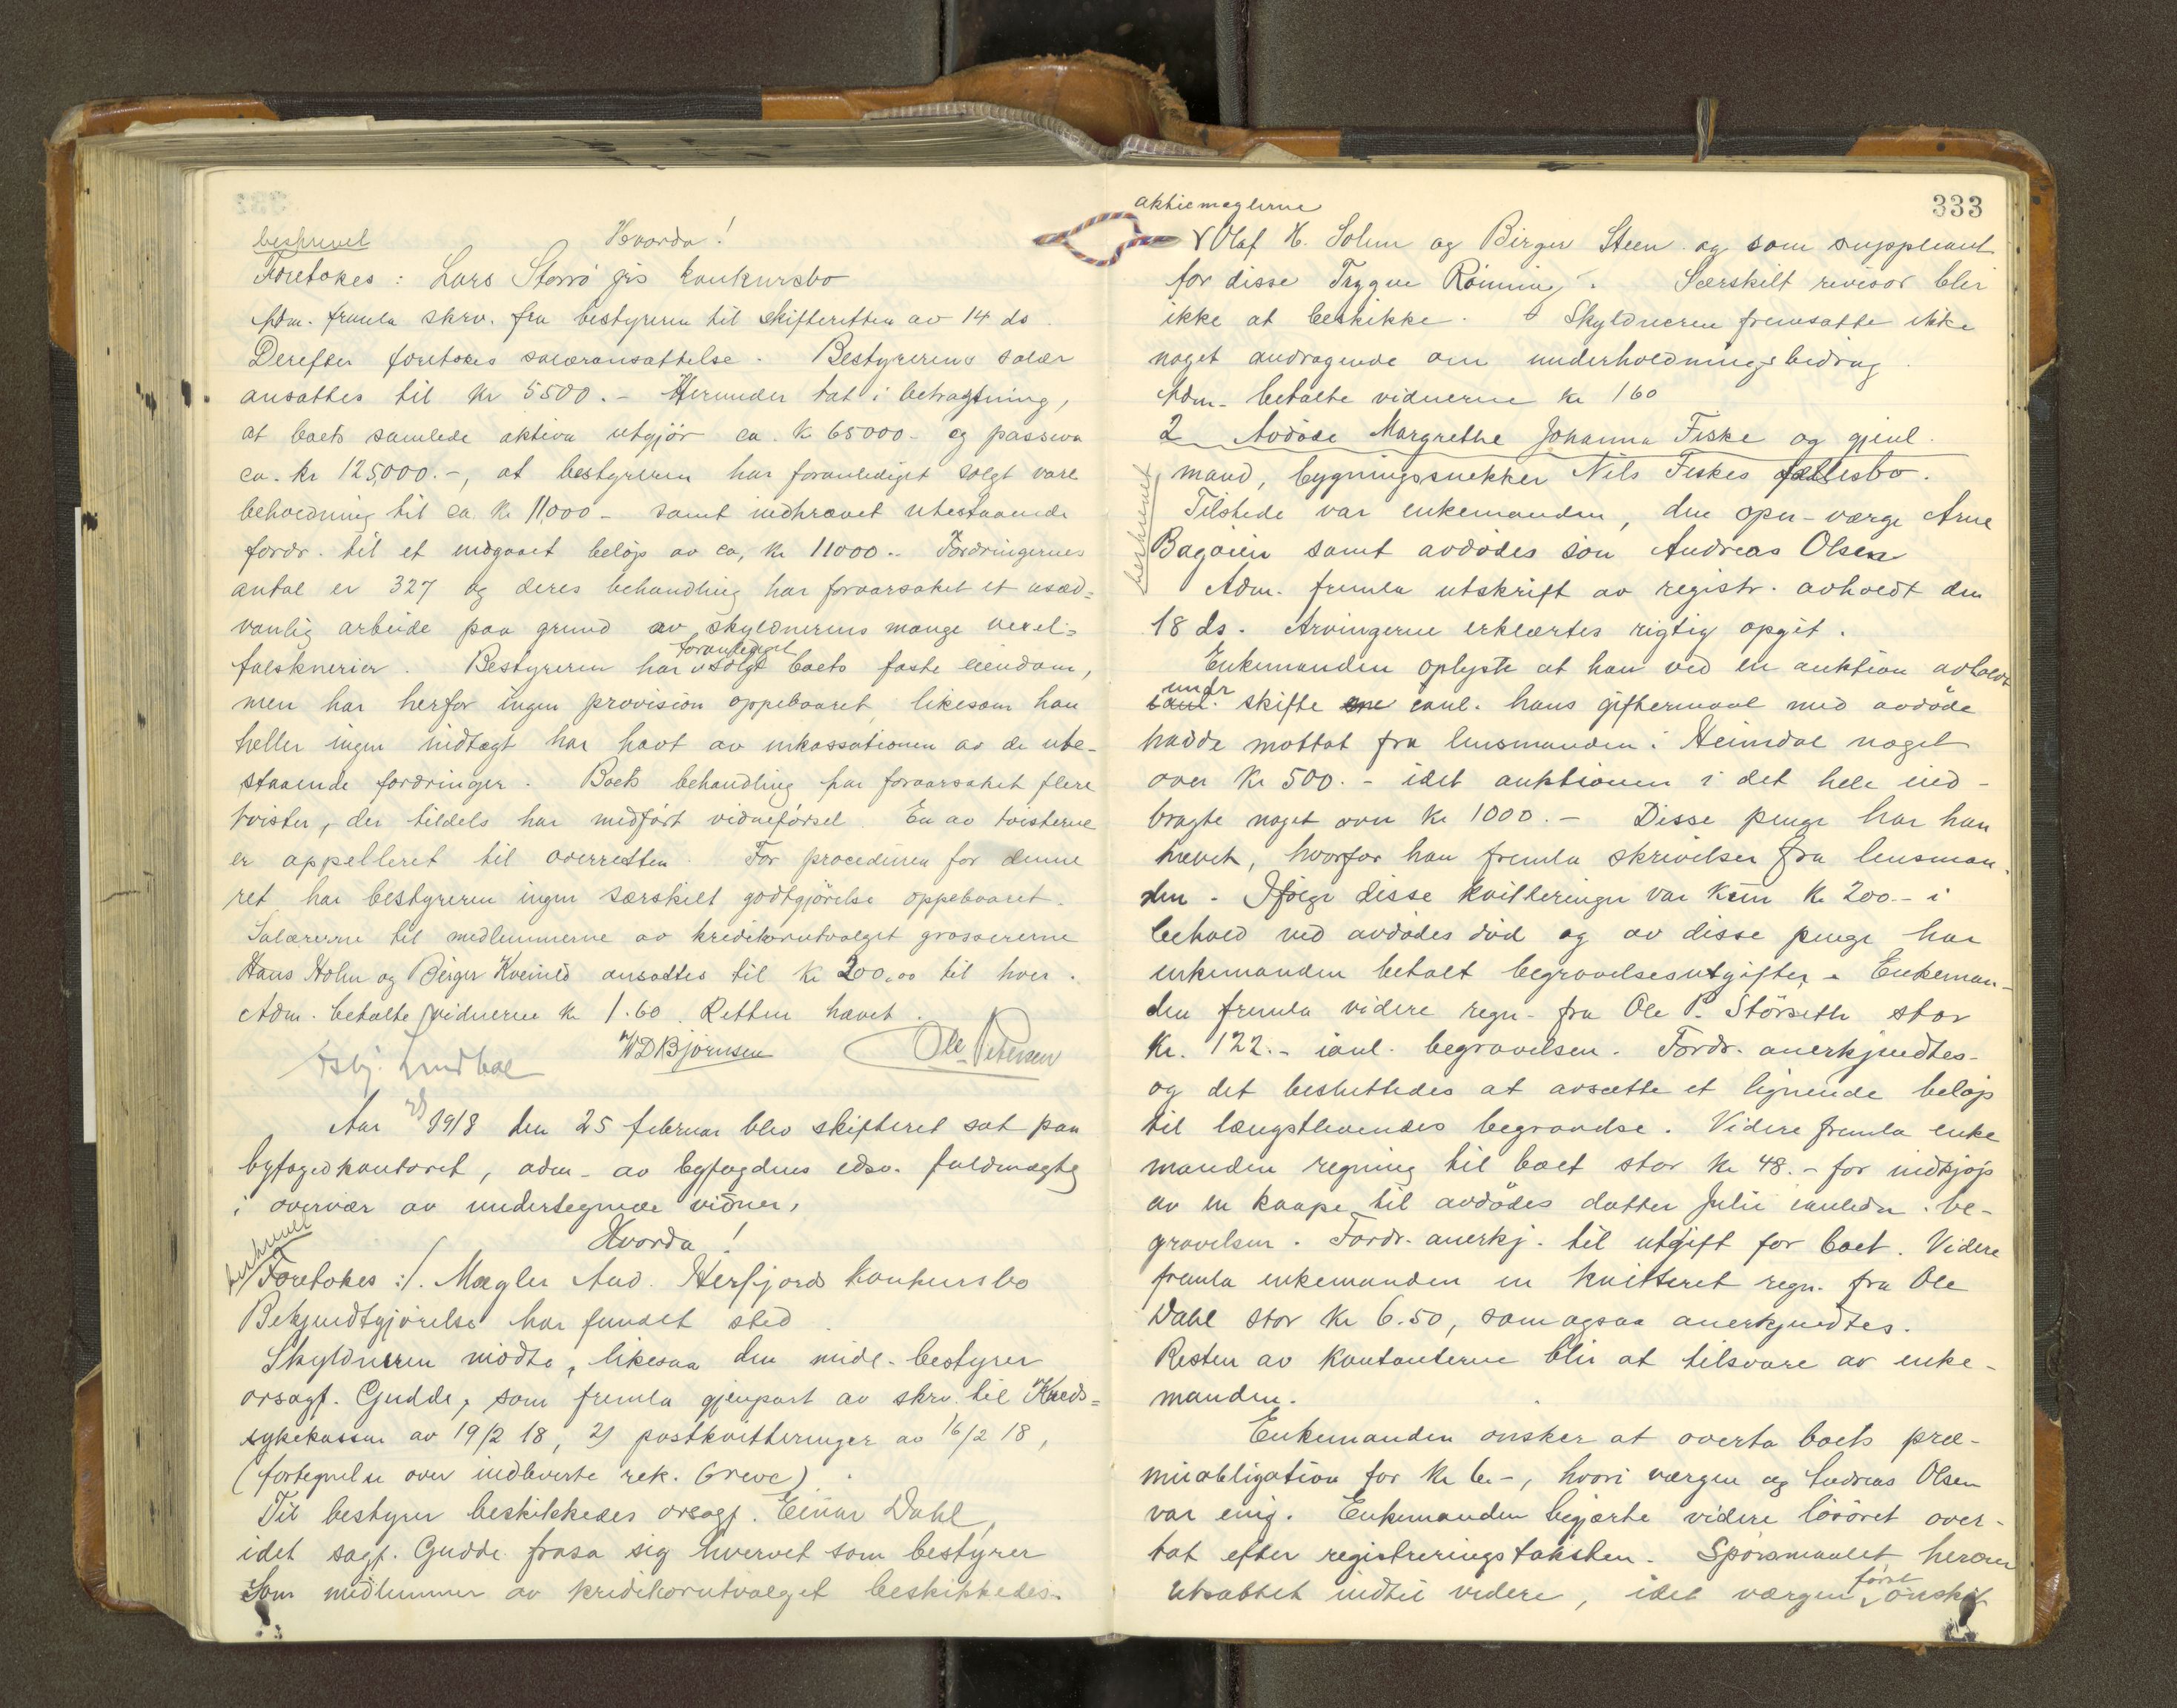 Hvorda!
beskrevet
Foretokes: Lars Storrö jrs konkursbo
Adm. fremla skrv. fra bestyreren til skifteretten av 14 ds.
Derefter foretokes salæransættelse. Bestyrerens salær
ansattes til kr 5500.- Herunder tat i betragtning,
at boets samlede aktiva utgjör ca. k 65000- og passiva
ca. kr 125,000.-, at bestyreren har foranlediget solgt vare
beholdning til ca kr 11,000- samt indkrævet utestaaende
fordr. til et indgaaet belöp av ca, kr 11000.- Fordringernes
antal er 327 og deres behandling har foraarsaket et usæd=
vanlig arbeide paa grund av skyldnerens mange vexel=
falsknerier. Bestyreren har foranlediget solgt boets faste eiendom,
men har herfor ingen provision oppebaaret, likesom han
heller ingen indtægt har havt av inkassationen av de ute-
staaende fordringer. Boets behandling har foraarsaket flere
tvister, der tildels har medfört vidneförsel. En av tvisterne
er appelleret til overretten. For proceduren for denne
ret har bestyreren ingen særskilt godtgjörelse oppebaaret.
Salærerne til medlemmerne av kreditorutvalget grossererne
Hans Holm og Birger Kveineid ansattes til kr 200,00 til hver.
Adm. betalte vidnerne kr 1.60. Retten hævet.
Asbj. Lindboe WDBjörnsen Ole Petersen
Aar 1918 den 25 februar blev skifteret sat paa
byfogedkontoret, adm- av byfogdens edsv. fuldmægtig
i overvær av undertegnede vidner,
Hvorda!
beskrevet
Foretokes:/. Mægler And. Herfjords konkursbo
Bekjendtgjörelse har fundet sted.
Skyldneren mödte, likesaa den midl. bestyrer
orsagf. Gudde, som fremla gjenpart av skrv. til Kreds=
sykekassen av 19/2 18, 2) postkvitteringer av 16/2 18,
(fortegnelse over indleverte rek. breve).
Til bestyrer beskikkedes orsagf. Einar Dahl,
idet sagf. Gudde frasa sig hvervet som bestyrer
Som medlemmer av kreditorutvalget beskikkedes-
333
aktiemeglerne
Olaf H. Solem og Birger Steen og som suppleant
for disse Trygve Rönning. Særskilt revisor blir
ikke at beskikke. Skyldneren fremsatte ikke
noget andragende om underholdningsbidrag.
Adm- betalte vidnerne kr 160
2 Avdöde Margrethe Johanna Fiske og gjenl.
mand, bygningssnekker Nils Fiskes fællesbo.
beskrevet
Tilstede var enkemanden, den opn-værge Arne
Bagöien samt avdödes sön Andreas Olsen
Adm. fremla utskrift av registr. avholdt den
18 ds. Arvingerne erklærtes rigtig opgit.
Enkemanden oplyste at han ved en auktion avholdt
undr skifte ianl. hans giftermaal med avdöde
hadde mottat fra lensmanden i Heimdal noget
over kr 500.- idet auktionen i det hele ind-
bragte noget over kr 1000.- Disse penge har han
hævet, hvorfor han fremla skrivelser fra lensman-
den. Ifölge disse kvitteringer var kun kr 200.- i
behold ved avdödes död og av disse penge har
enkemanden betalt begravelsesutgifter. Enkeman-
den fremla videre regn- fra Ole P. Störseth stor
kr. 122.- ianl. begravelsen. Fordr. anerkjendtes-
og det besluttedes at avsætte et lignende belöp
til længstlevendes begravelse. Videre fremla enke
manden regning til boet stor kr 48.- for indkjöp
av en kaape til avdödes datter Julie i anledn. be-
gravelsen. Fordr. anerkj. til utgift for boet. Videre
fremla enkemanden en kvitteret regn. fra Ole
Dahl stor kr 6.50, som ogsaa anerkjendtes.
Resten av kontanterne blir at tilsvare av enke-
manden.
Enkemanden önsker at overta boets præ-
mieobligation for kr 6.-, hvori værgen og Andreas Olsen
var enig. Enkemanden begjærte videre lösöret over-
tat efter registreringstaksten. Spörsmaalet herom
utsattet indtil videre, idet værgen först önsket